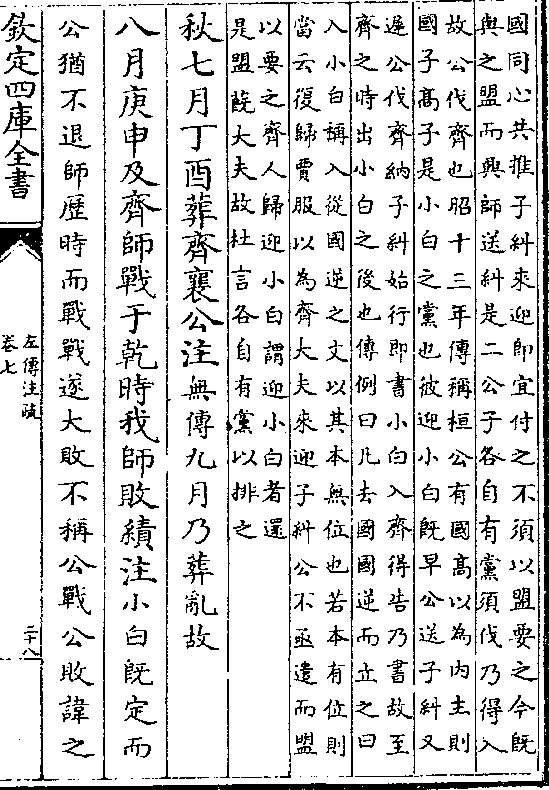 國同心共推子糾來迎即宜付之不須以盟要之今既
與之盟而興師送糾是二公子各自有黨須伐乃得入
故公伐齊也昭十三年傳稱桓公有國高以為內主則
國子高子是小白之黨也彼迎小白既早公送子糾又
遲公伐齊納子糾始行即書小白入齊得告乃書故至
齊之時出小白之後也傳例曰凡去國國逆而立之曰
入小白稱入從國逆之文以其本無位也若本有位則
當云復歸賈服以為齊大夫來迎子糾公不亟遣而盟
以要之齊人歸迎小白謂迎小白者還
是盟蔇大夫故杜言各自有黨以排之
秋七月丁酉葬齊襄公注無傳九月乃葬亂故
八月庚申及齊師戰于乾時我師敗績注小白既定而
公猶不退師歷時而戰戰遂大敗不稱公戰公敗諱之
欽定四庫全書
左傳注疏
卷七
二十八